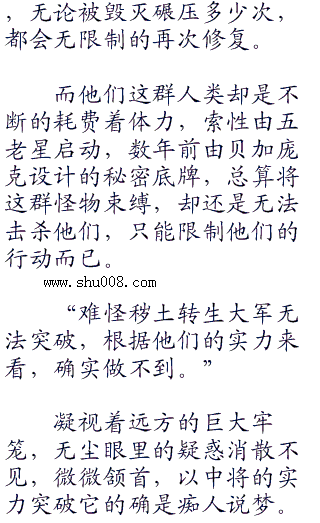 ，无论被毁灭碾压多少次，
都会无限制的再次修复。
而他们这群人类却是不
断的耗费着体力，索性由五
老星启动，数年前由贝加庞
克设计的秘密底牌，总算将
这群怪物束缚，却还是无法
击杀他们，只能限制他们的
行动而已。
www.shu008.com
“难怪秽土转生大军无
法突破，根据他们的实力来
看，确实做不到。”
凝视着远方的巨大牢
笼，无尘眼里的疑惑消散不
见，微微颔首，以中将的实
力突破它的确是痴人说梦。